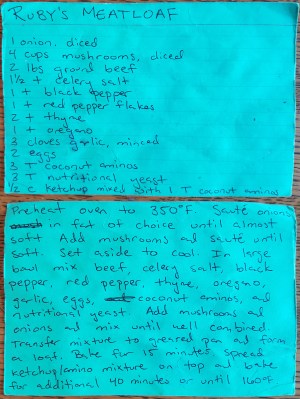 RUBY'S MEATLOAF
1 onion, diced
4 cups mushrooms, diced
2 lbs ground beef
1½ t celery salt
1 t black pepper
1 t red pepper flakes
2 t thyme
1 t oregano
3 cloves garlic, minced
2 eggs
3 T coconut aminos
3 T nutritional yeast
½ c ketchup mixed with 1 T coconut aminos
Preheat oven to 350°F. Sauté onions
in fat of choice until almost
soft Add mushrooms and sauté until
soft. Set aside to cool. In large
bowl mix beef, celery salt, black
pepper, red pepper, thyme, oregano,
garlic, eggs, coconut aminos, and
nutritional yeast. Add mushrooms and
onions and mix until well combined
Transfer mixture to greased pan and form
a loaf. Bake for 15 minutes. Spread
ketchup/amino mixture on top and bake
for additional 40 minutes or until 160°F